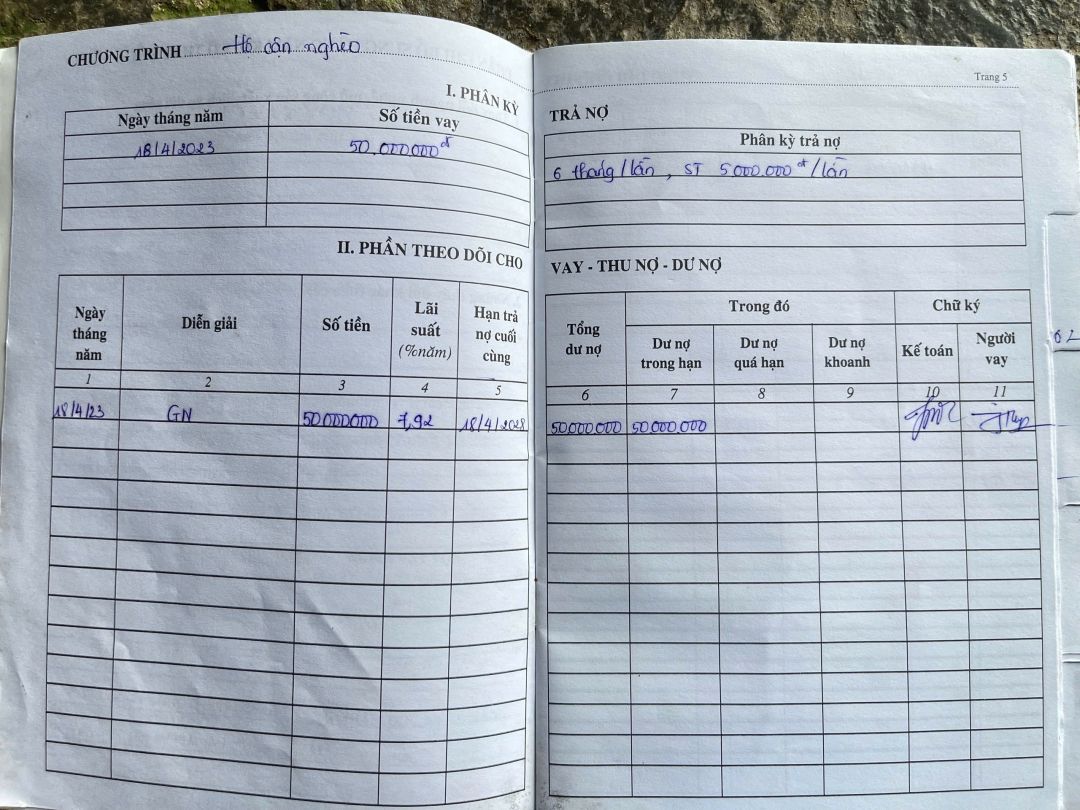 CHƯƠNG TRÌNH Hộ cận nghèo
Trang 5
I. PHÂN KỲ TRẢ NỢ
Ngày tháng năm Số tiền vay Phân kỳ trả nợ
18/4/2023 50.000.000đ 6 tháng/lần, ST 5000.000đ/lần
II. PHẦN THEO DÕI CHO VAY - THU NỢ - DƯ NỢ
Ngày tháng năm Diễn giải Số tiền Lãi suất (%năm) Hạn trả nợ cuối cùng Tổng dư nợ Trong đó Chữ ký
Dư nợ trong hạn Dư nợ quá hạn Dư nợ khoanh Kế toán Người vay
1 2 3 4 5 6 7 8 9 10 11
18/4/23 GN 50000000 7,92 18/4/2028 50000000 50000.000
6